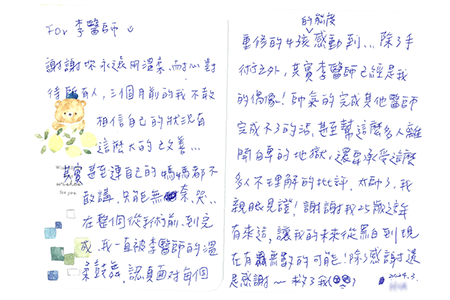 For 李醫師
謝謝你永遠用溫柔、耐心對
待所有人,三個月前的我不敢
相信自己的狀況有
這麼大的改善…
其實甚至連自己的媽媽都不
敢講,只能無奈、哭…
在整個從到術前、到完
成,我一直被李醫師的溫
柔鼓勵,認真面對每個
的態度
重修的牛孩感動到…除了手
術之外,其實李醫師已經是我
的偶像!帥氣的完成其他醫師
完成不了的活,甚至幫這麼多人離
開自卑的地獄,還要承受這麼
多人不理解的批評,太帥了,我
親眼見證!謝謝我25歲這年
有來這,讓我的未來從黑白到現
在有無數的可能!除了感謝還
是感謝~
2024.3.